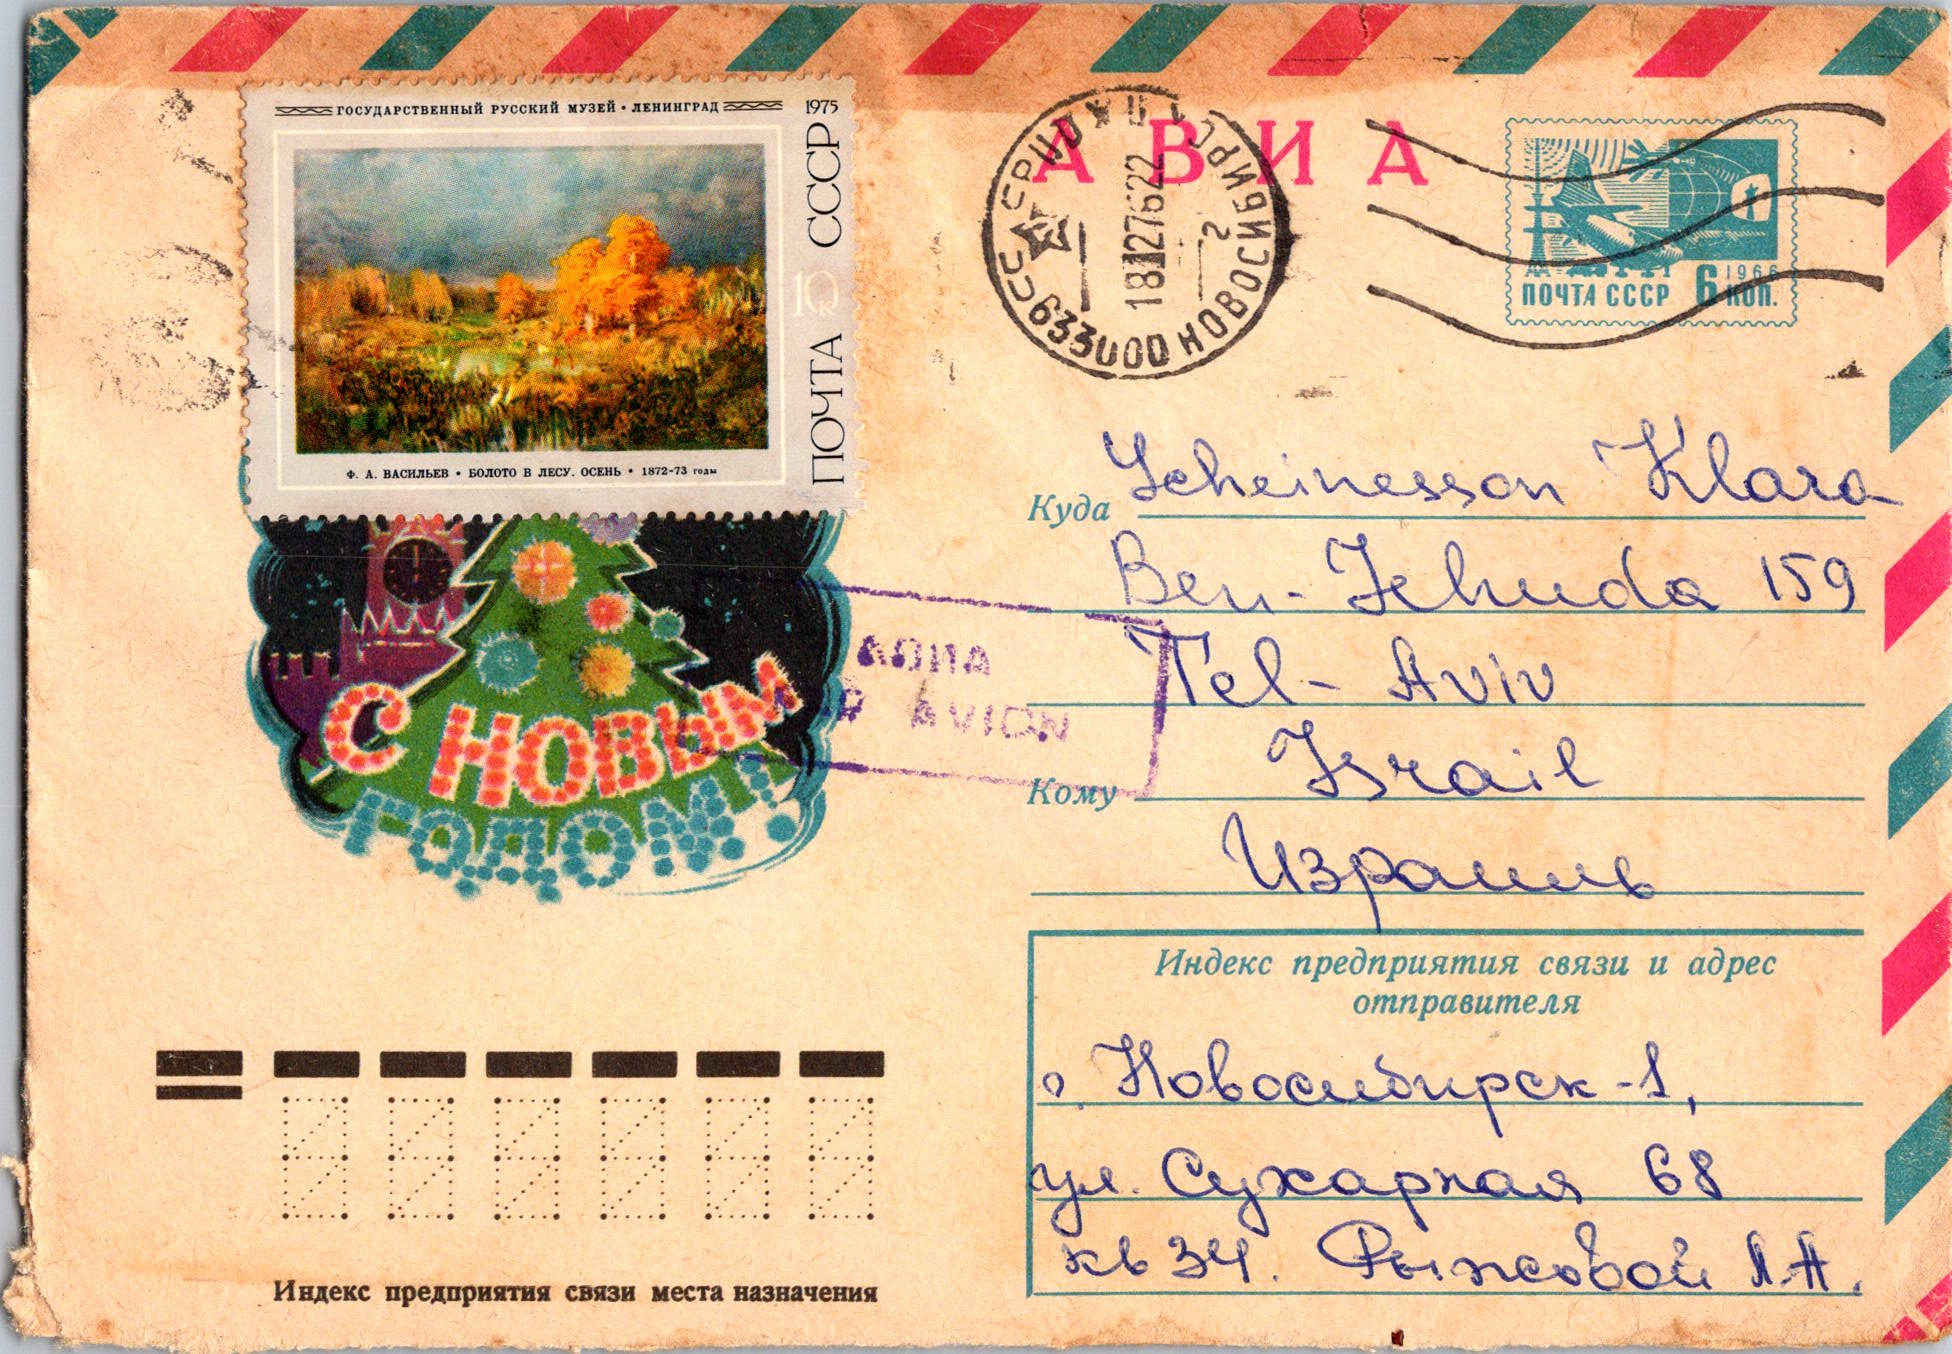 ГОСУДАРСТВЕННЫЙ РУССКИЙ МУЗЕЙ • ЛЕНИНГРАД 1975
ПОЧТА 10к СССР
Ф. А. ВАСИЛЬЕВ • БОЛОТО В ЛЕСУ. ОСЕНЬ • 1872-73 годы
АВИА
СССР
НОВОСИБИРСК
2
1966
ПОЧТА СССР 6 КОП.
С НОВЫМ
ГОДОМ!
AVION
Куда Scheinesson Klara
Ben-Jehuda 159
Tel-Aviv
Кому Israil
Израиль
Индекс предприятия связи и адрес
отправителя
г. Новосибирск-1,
ул. Сухарная 68
кв 34. Рыжовой Л.А.
Индекс предприятия связи места назначения